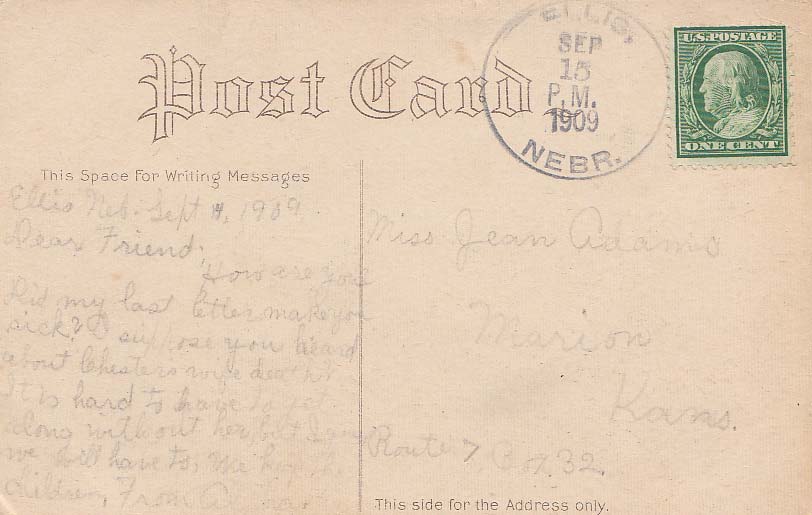 Post Card
ELLIS,
SEP
15
P.M.
1909
NEBR.
U.S. POSTAGE
ONE CENT
This Space For Writing Messages
Ellis Neb. Sept 1909
Dear Friend;
How are you
Did my last letter make you
sick? I suppose you heard
about Chesters wife death?
It is hard to have to get
along without her, but I
we will have to, We the
From
Miss Jean Adams
Marion
Kans.
Route 7 Box 32.
This side for the Address only.